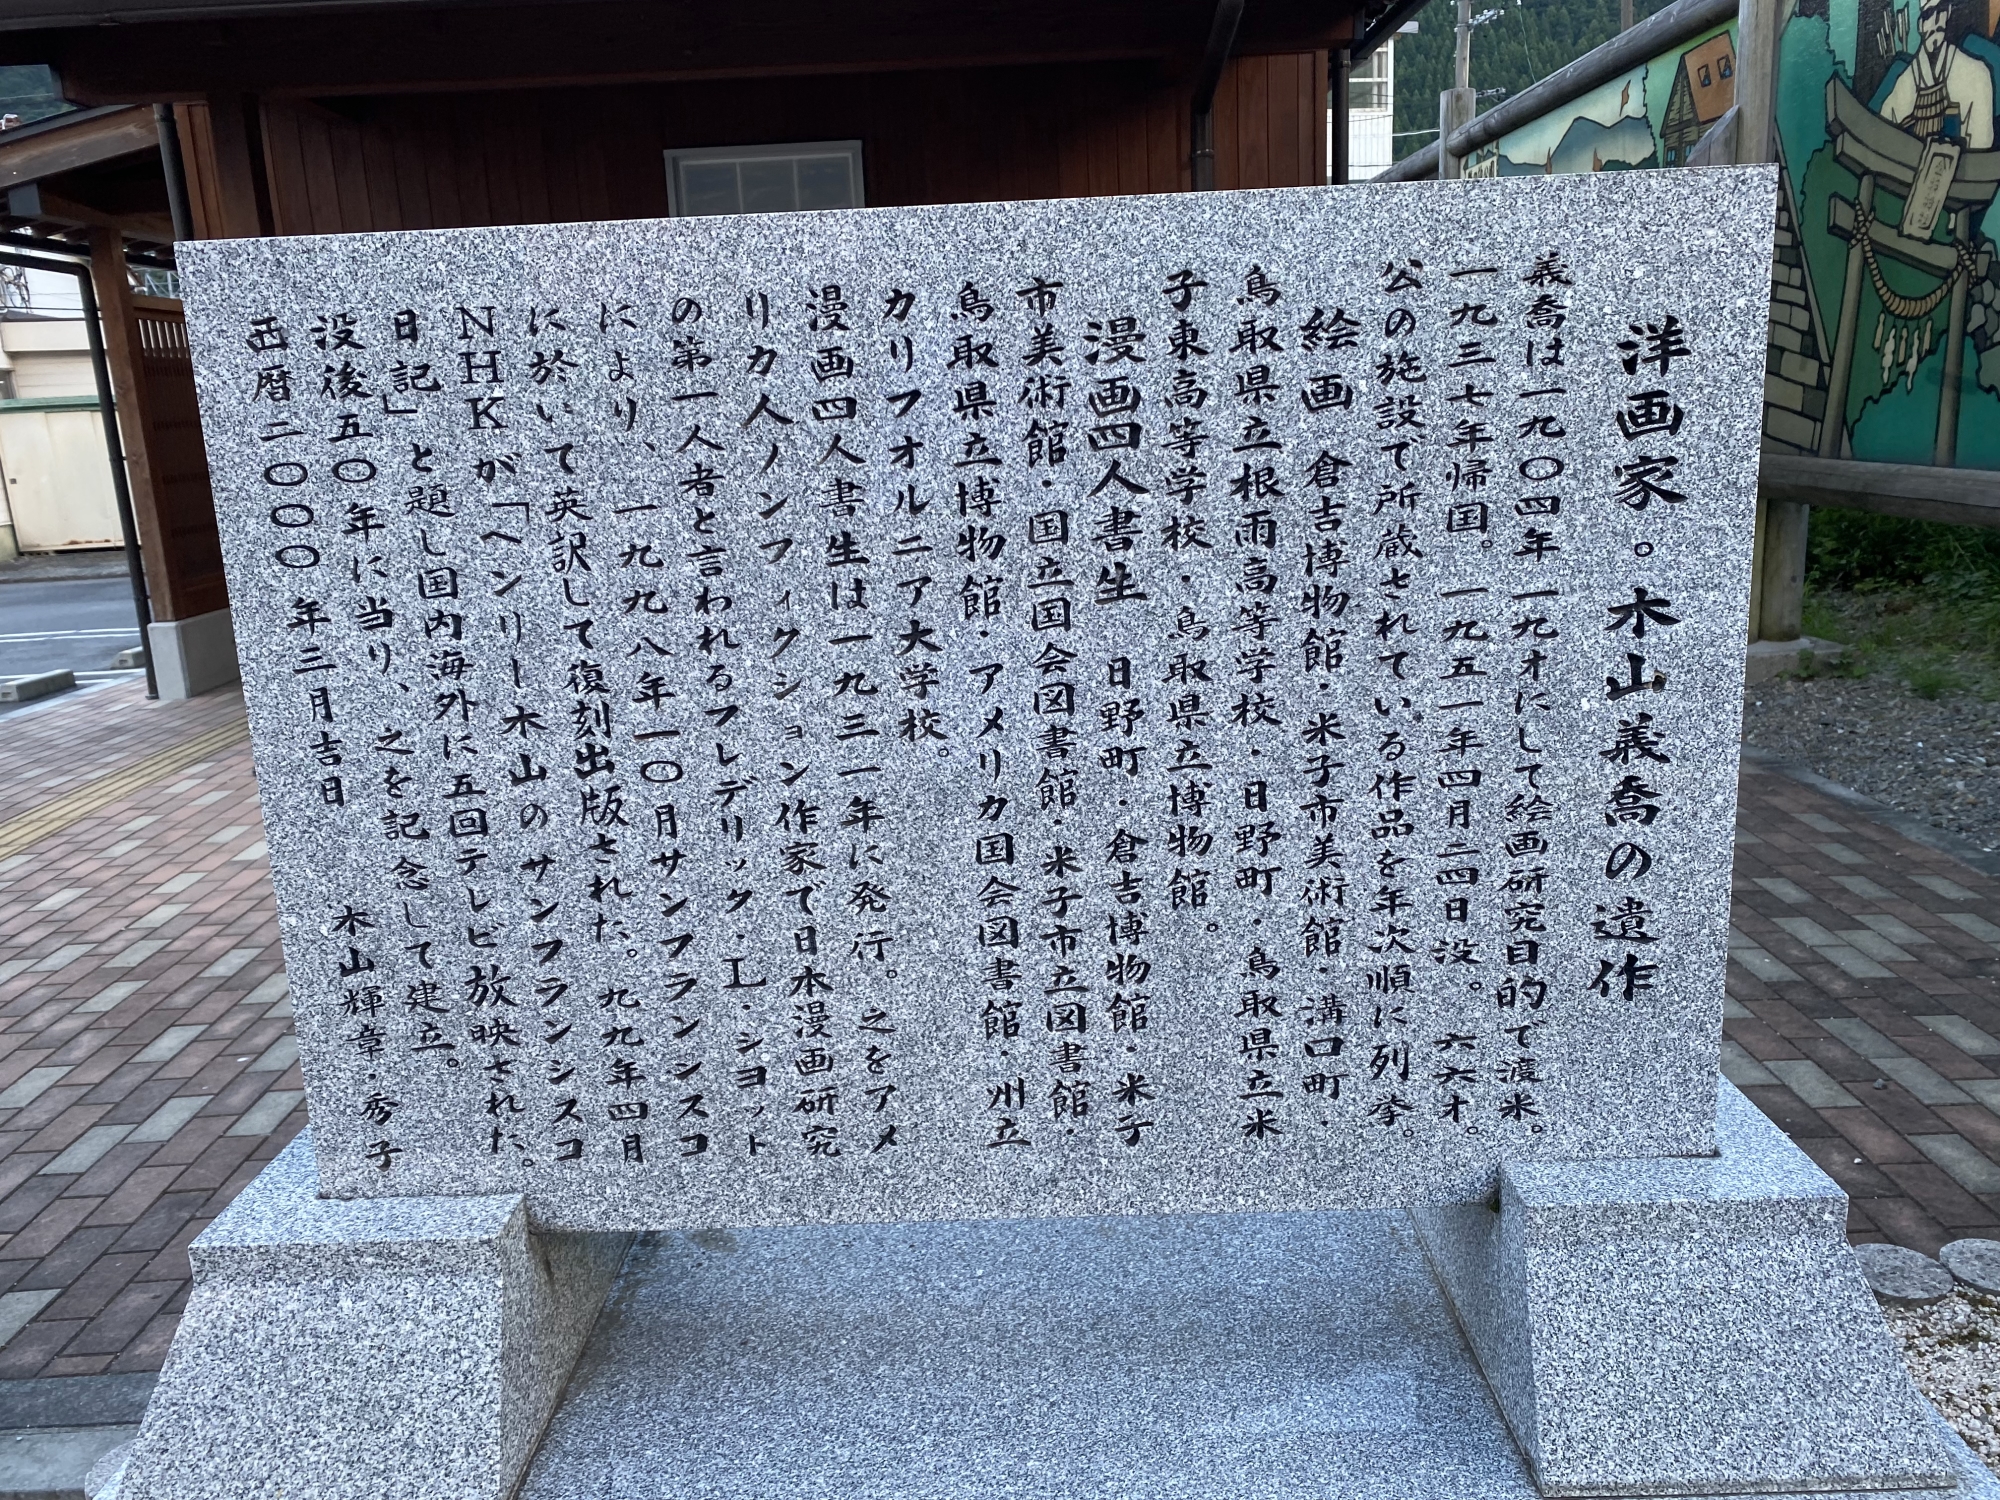 洋画家。木山義喬の遺作
義喬は一九〇四年一九才にして絵画研究目的で渡米。
一九三七年帰国。一九五一年四月二四日没。六六才。
公の施設で所蔵されている作品を年次順に列挙。
絵画 倉吉博物館・米子市美術館・溝口町・
鳥取県立根雨高等学校・日野町・鳥取県立米
子東高等学校・鳥取県立博物館。
漫画四人書生 日野町・倉吉博物館・米子
市美術館・国立国会図書館・米子市立図書館・
鳥取県立博物館・アメリカ国会図書館・州立
カリフオルニア大学校。
漫画四人書生は一九三一年に発行。之をアメ
リカ人ノンフィクション作家で日本漫画研究
の第一人者と言われるフレデリック・L・シヨット
により、一九九八年一〇月サンフランシスコ
に於いて英訳して復刻出版された。九九年四月
NHKが「ヘンリー木山のサンフランシスコ
日記」と題し国内海外に五回テレビ放映された。
没後五〇年に当り、之を記念して建立。
西暦二〇〇〇年三月吉日 木山輝章・秀子